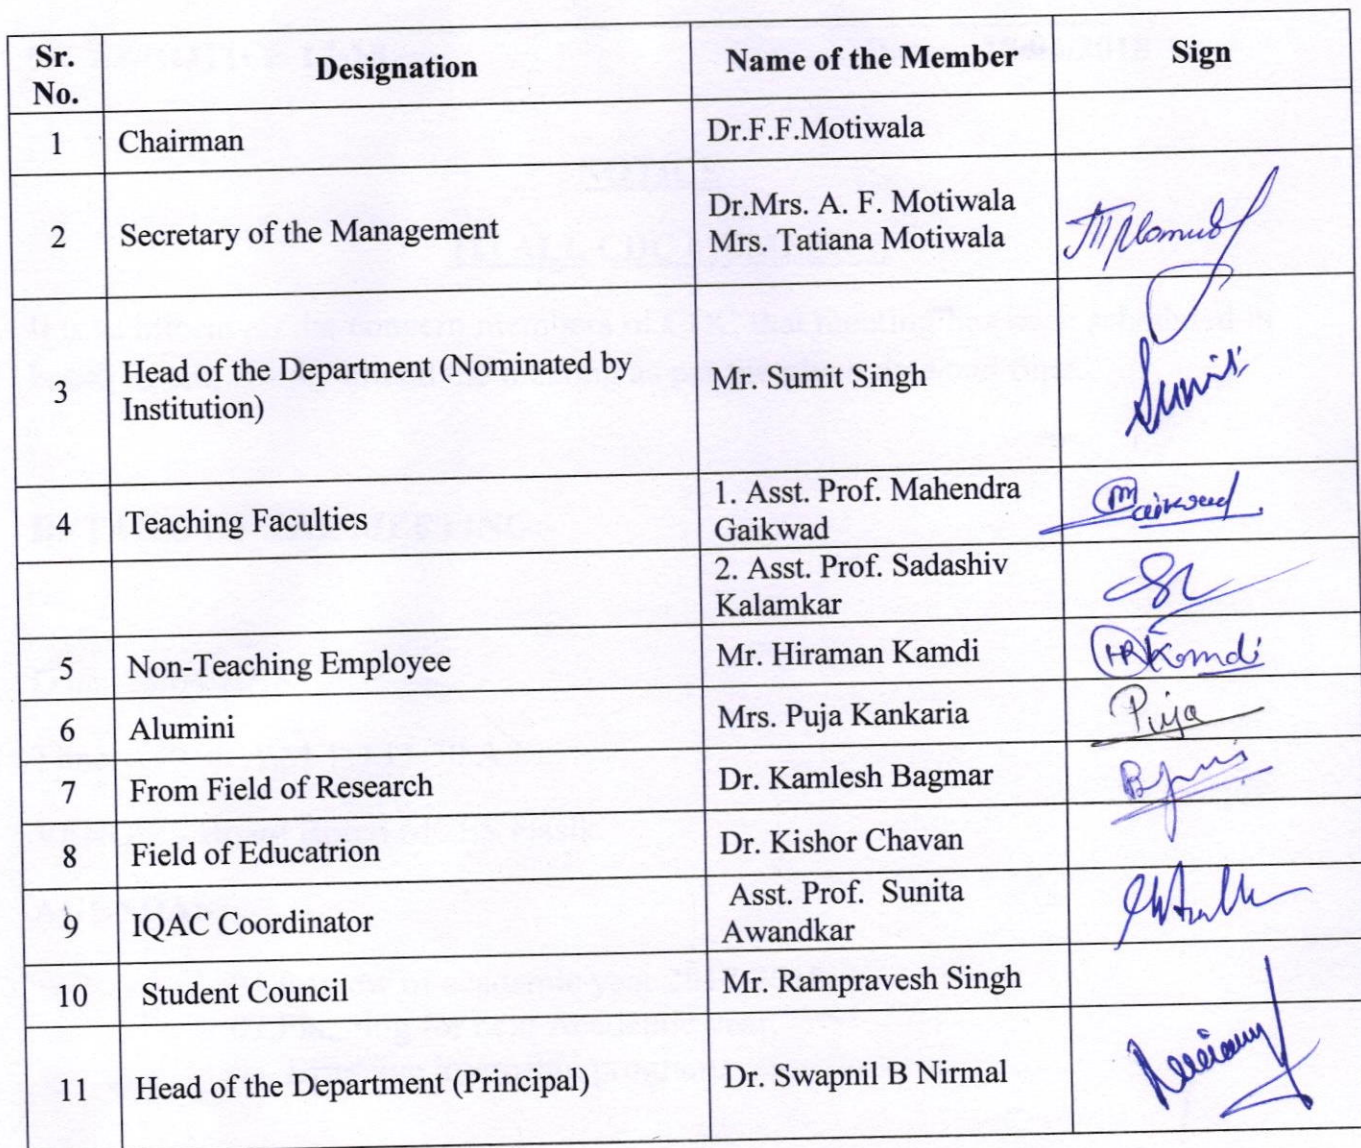 Sr. No. Designation Name of the Member Sign
1 Chairman Dr.F.F.Motiwala
2 Secretary of the Management Dr.Mrs. A. F. Motiwala
Mrs. Tatiana Motiwala
3 Head of the Department (Nominated by
Institution) Mr. Sumit Singh Sumit
4 Teaching Faculties 1. Asst. Prof. Mahendra
Gaikwad Gaikwad
2. Asst. Prof. Sadashiv
Kalamkar
5 Non-Teaching Employee Mr. Hiraman Kamdi HRKamdi
6 Alumini Mrs. Puja Kankaria Puja
7 From Field of Research Dr. Kamlesh Bagmar
8 Field of Educatrion Dr. Kishor Chavan
9 IQAC Coordinator Asst. Prof. Sunita
Awandkar
10 Student Council Mr. Rampravesh Singh
11 Head of the Department (Principal) Dr. Swapnil B Nirmal